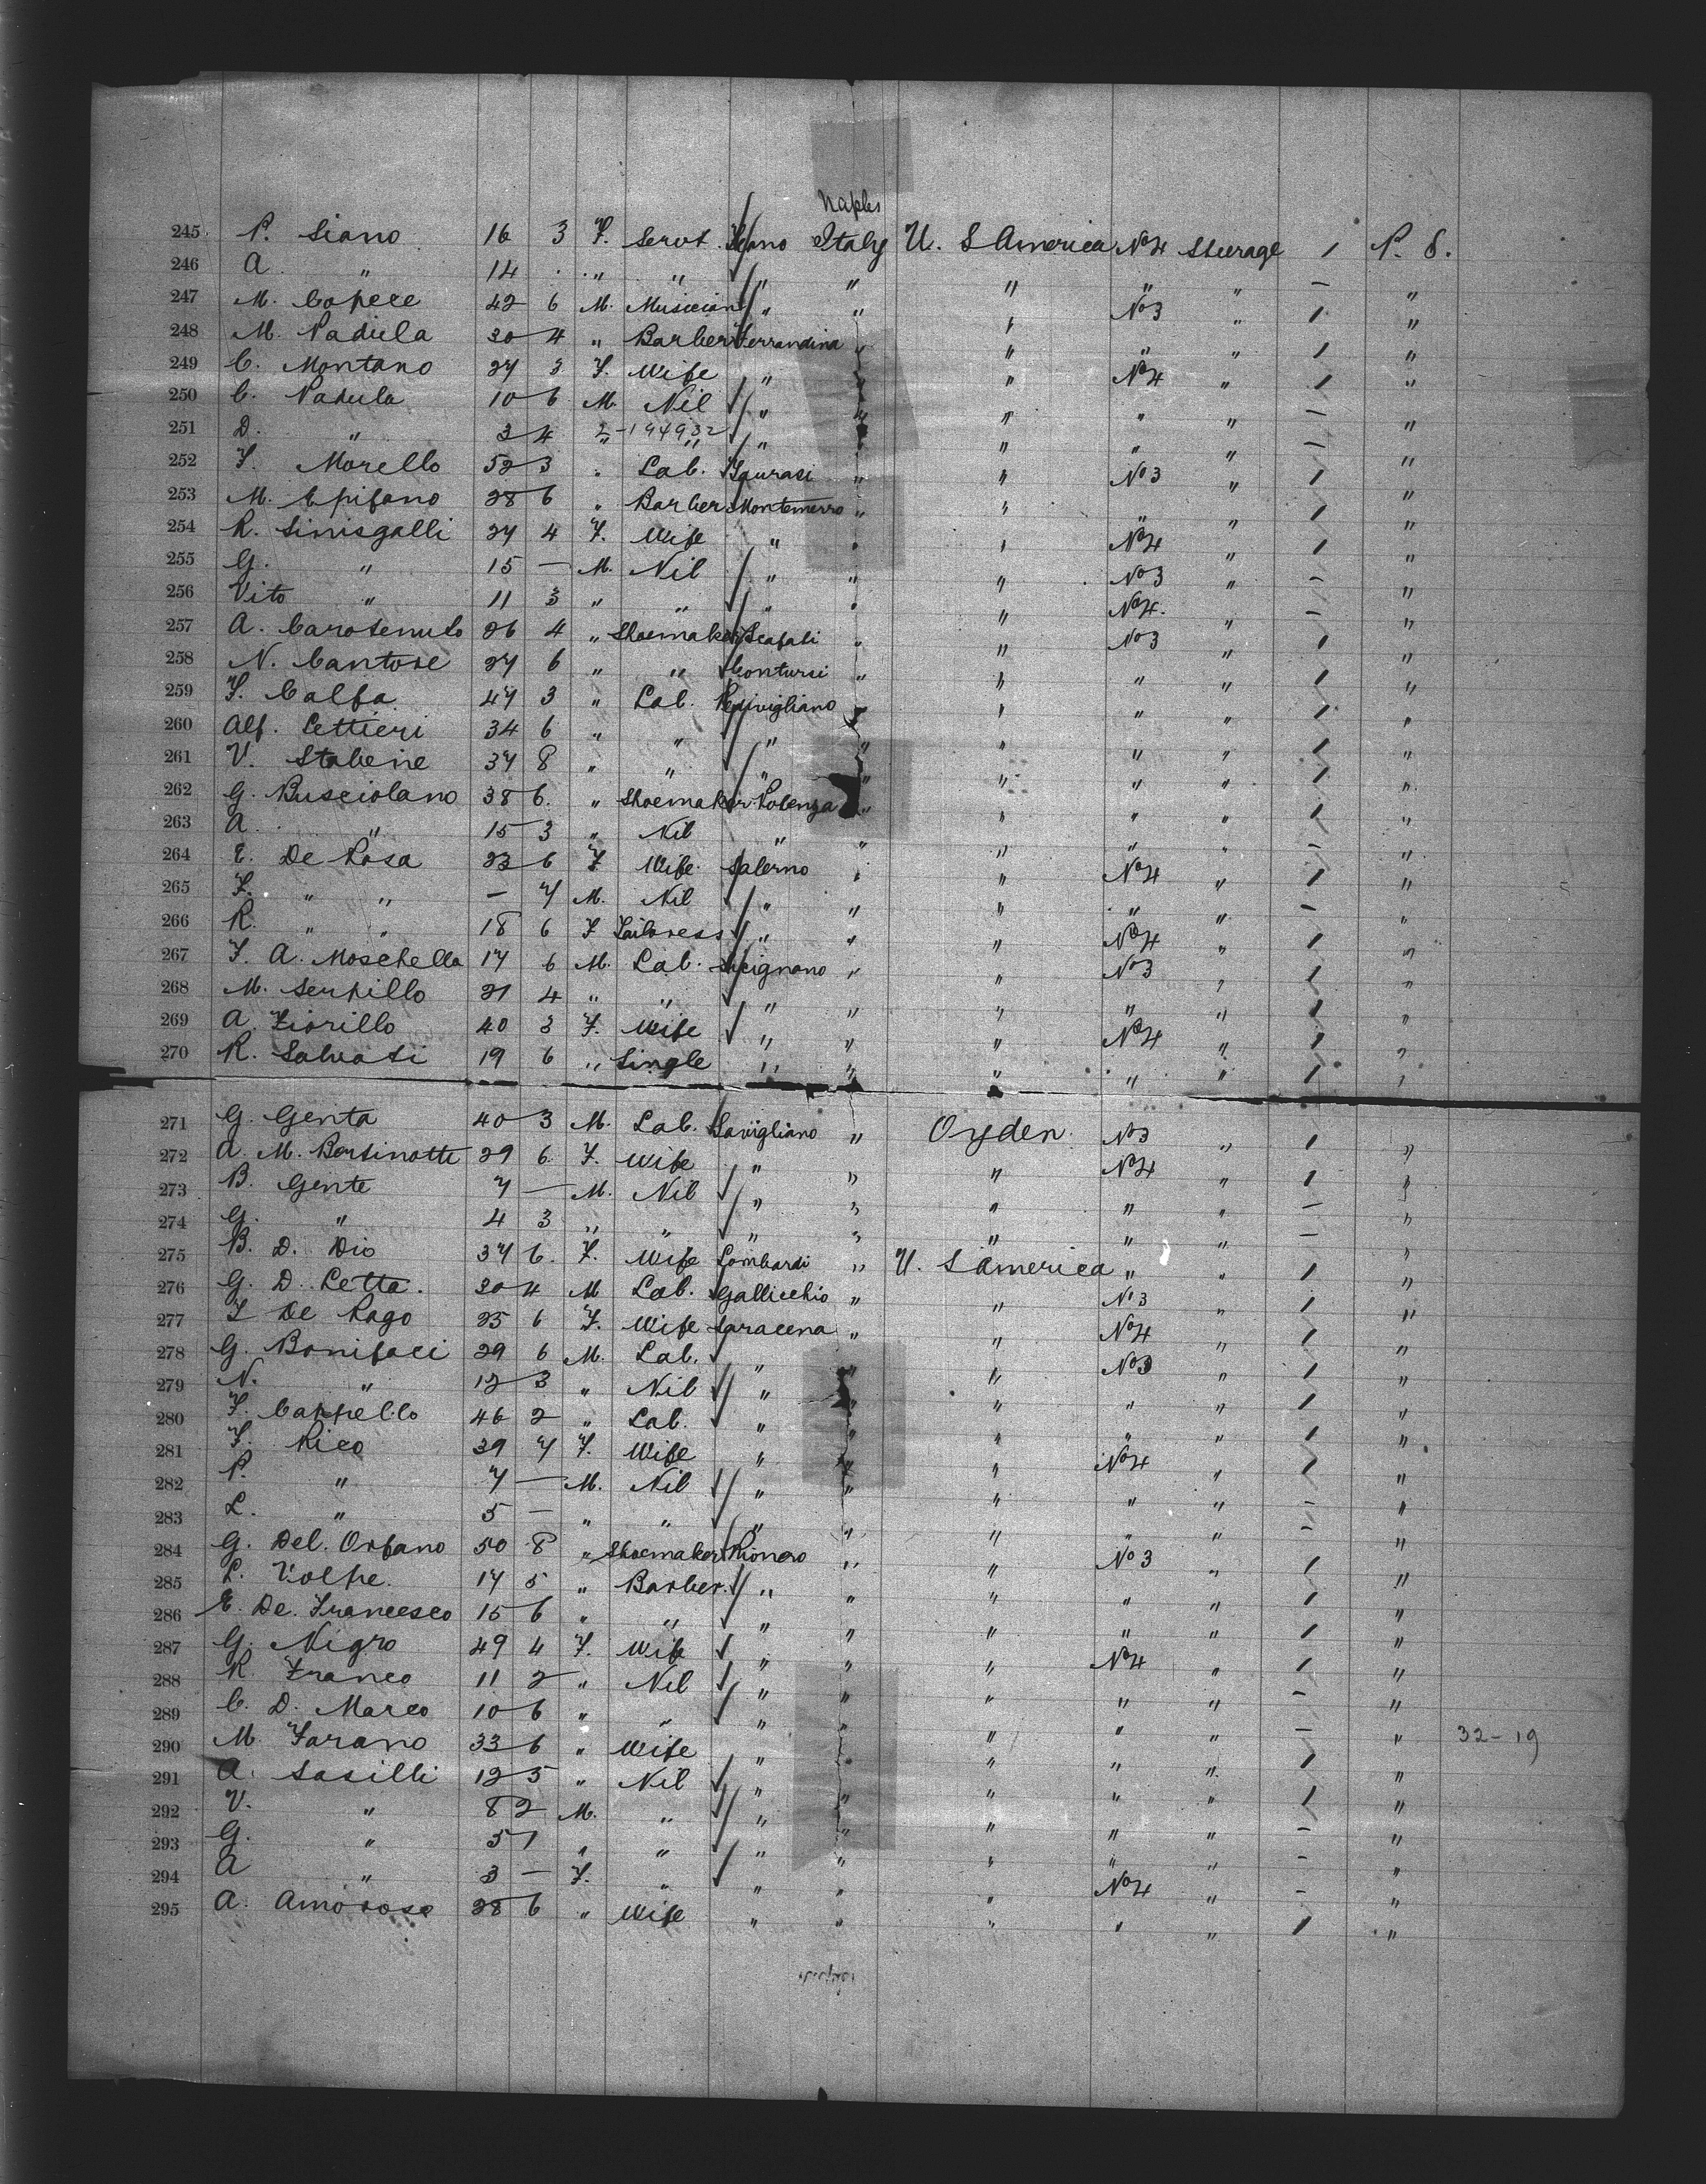 Naples
245 P. Siano 16 3 F. Servt. Italy U. S America No 4 Steerage 1 P. S.
246 A " 14 . . " " " " " " " — "
247 M. Capece 42 6 M. Musician " " " No 3 " 1 "
248 M. Padula 30 4 " Barber Ferrandina " " " " 1 "
249 C. Montano 27 3 F. Wife " " " No 4 " 1 "
250 C. Padula 10 6 M. Nil " " " " " — "
251 D. " 3 4 " 2-194932 " " " " " " — "
252 F. Morello 52 3 " Lab. Taurasi " " No 3 " 1 "
253 M. Epifano 28 6 " Barber Montemurro " " " " 1 "
254 R. Sinisgalli 27 4 F. Wife " " " No 4 " 1 "
255 G. " 15 — M. Nil " " " No 3 " — "
256 Vito " 11 3 " " " " " No 4. " — "
257 A. Carotenuto 26 4 " Shoemaker Scafati " " No 3 " 1 "
258 N. Cantore 27 6 " " Contursi " " " " 1 "
259 F. Calfa 47 3 " Lab. Pedivigliano " " " " 1 "
260 Alf. Lettieri 34 6 " " " " " " " 1 "
261 V. Stabene 37 8 " " " " " " " 1 "
262 G. Busciolano 38 6. " Shoemaker Potenza " " " " 1 "
263 A. " 15 3 " Nil " " " " " — "
264 E. De Rosa 23 6 F Wife Salerno " " No 4 " 1 "
265 F. " " — 7 M. Nil " " " " " — "
266 R. " " 18 6 F Tailoress " " " No 4 " 1 "
267 F. A. Moschella 17 6 M. Lab. Sicignano " " No 3 " 1 "
268 M. Serpillo 21 4 " " " " " " " 1 "
269 A. Fiorillo 40 3 F. Wife " " " No 4 " 1 "
270 R. Salvati 19 6 " Single " " " " " 1 "
271 G. Genta 40 3 M. Lab. Savigliano " Ogden. No 3 " 1 "
272 A. M. Bertinotti 29 6 F. Wife " " " No 4 " 1 "
273 B. Gente 7 — M. Nil " " " " " — "
274 G. " 4 3 " " " " " " " — "
275 B. D. Dio 37 6. F. Wife Lombardi " U. S America " " 1 "
276 G. D. Letta. 30 4 M Lab. Gallicchio " " No 3 " 1 "
277 I De Rago 25 6 F. Wife Saracena " " No 4 " 1 "
278 G. Bonifaci 29 6 M. Lab. " " " No 3 " 1 "
279 N. " 12 3 " Nil " " " " " 1 "
280 F. Cappello 46 2 " Lab. " " " " " 1 "
281 F. Rico 39 7 F. Wife " " " No 4 " 1 "
282 P. " 7 — M. Nil " " " " " — "
283 L. " 5 — " " " " " " " — "
284 G. Del. Orfano 50 8 " Shoemaker Rionero " " No 3 " 1 "
285 P. Volpe. 17 5 " Barber. " " " " " 1 "
286 E. De. Francesco 15 6 " " " " " " " 1 "
287 G. Nigro 49 4 F. Wife " " " No 4 " 1 "
288 R. Franco 11 2 " Nil " " " " " — "
289 C. D. Marco 10 6 " " " " " " " — "
290 M. Farano 33 6 " Wife " " " " " 1 " 32-19
291 A. Sasilli 12 5 " Nil " " " " " 1 "
292 V. " 8 2 M. " " " " " " — "
293 G. " 5 1 " " " " " " " — "
294 A " 3 — F. " " " " No 4 " — "
295 A. Amoroso 28 6 " Wife " " " " " 1 "